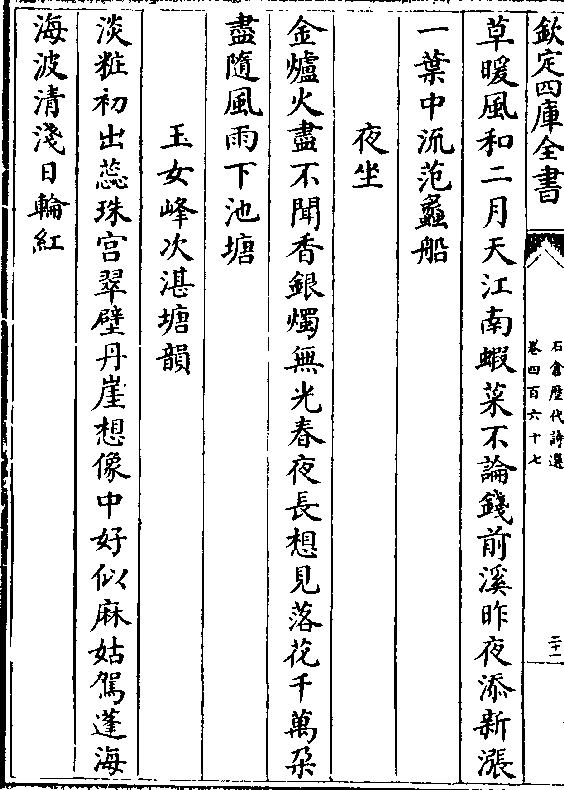 欽定四庫全書
石倉歷代詩選
卷四百六十七
二十一
草暖風和二月天江南蝦菜不論錢前溪昨夜添新漲
一葉中流范蠡船
夜坐
金爐火盡不聞香銀燭無光春夜長想見落花千萬朶
盡隨風雨下池塘
玉女峰次湛塘韻
淡粧初出蕊珠宫翠壁丹崖想像中好似麻姑駕蓬海
海波清淺日輪紅